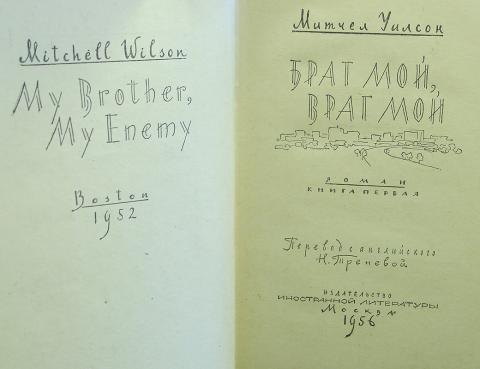 Mitchell Wilson
My Brother,
My Enemy
Boston
1952
Митчел Уилсон
БРАТ МОЙ,
ВРАГ МОЙ
РОМАН
КНИГА ПЕРВАЯ
Перевод с английского
Н. Треневой
ИЗДАТЕЛЬСТВО
ИНОСТРАННОЙ ЛИТЕРАТУРЫ
Москва
1956